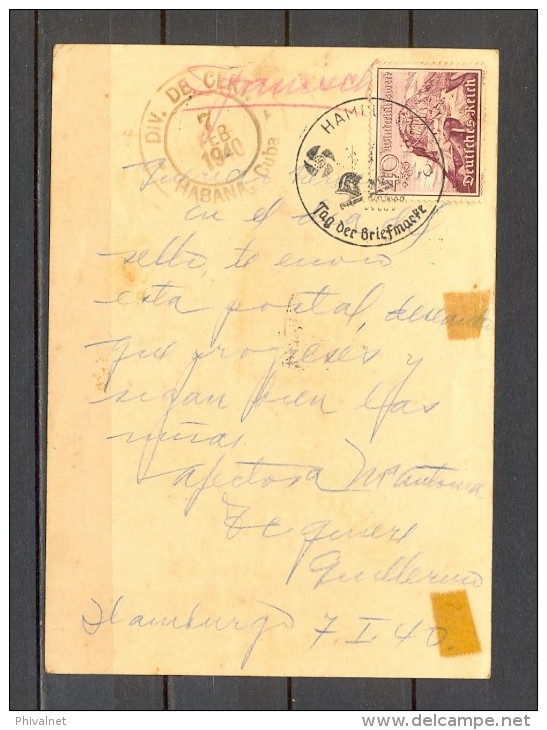 DIV. DE CER
7
FEB
1940
HABANA, Cuba
HAMBU
Tag der Briefmarke
Winterhilfswerk
Deutsches Reich
en el día del
sello, te envio
esta postal, deseando
que progreses y
sigan bien las
niñas
afectosa Mª Antonia
Te quiere
Guillermo
Hamburgo 7.I.40.
Phivalnet
http://www.delcampe.net